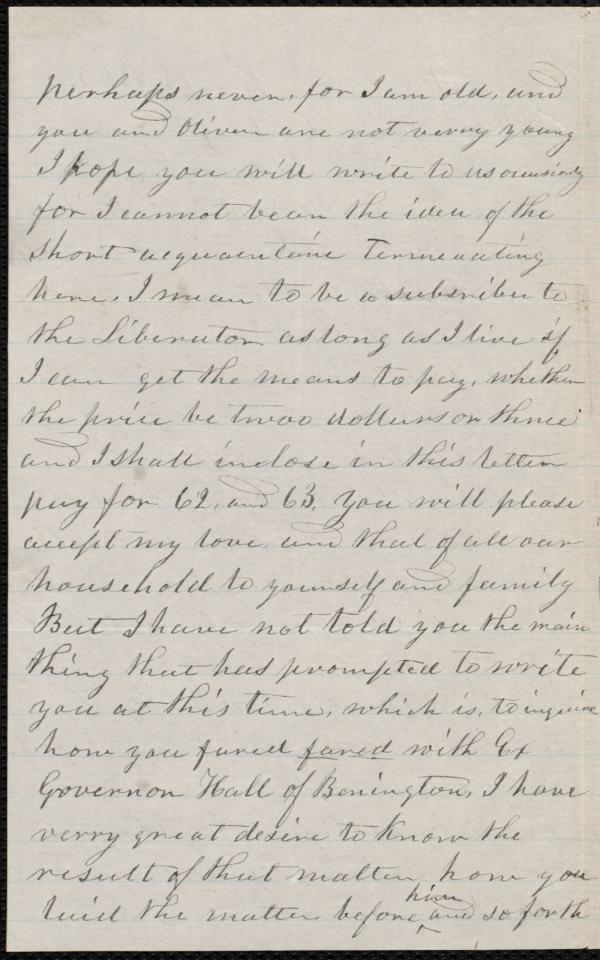 perhaps never, for I am old, and
you and Oliver are not verry young
I hope you will write to us occasionly
for I cannot bear the idea of the
short acquaintance
here. I mean to be a subscriber to
the Liberator as long as I live if
I can get the means to pay, whether
the price be twoo dollars or three
and I shall inclose in this letter
pay for 62, and 63. You will please
accept my love and that of all our
household to yourself and family
But I have not told you the main
thing that has prompted to write
you at this time, which is, to inquire
how you fared fared with Ex
Governor Hall of Benington, I have
verry great desire to know the
result of that matter, how you
laid the matter before him and so forth